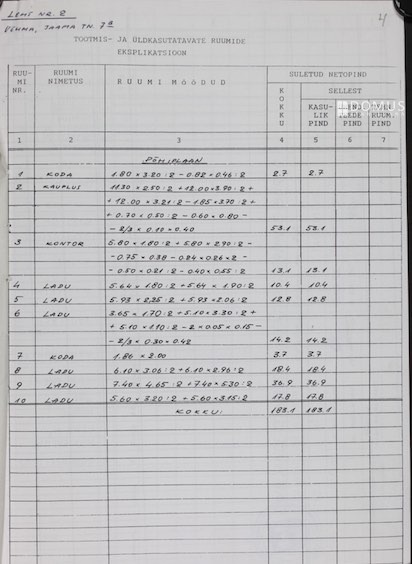 LEHT NR. 2
4
VÄNNA, JAAMA TN. 7ª
TOOTMIS- JA ÜLDKASUTATAVATE RUUMIDE
EKSPLIKATSIOON
RUUMI NR. RUUMI NIMETUS RUUMI MÕÕDUD SULETUD NETOPIND
KOKKU SELLEST
KASULIK PIND PIND RUUM. PIND
1 2 3 4 5 6 7
PÕHIPLAAN
1 KODA 1.80 × 3.20 : 2 - 0.82 × 0.46 : 2 2.7 2.7
2 KAUPLUS 11.30 × 2.50 : 2 + 12.00 × 3.90 : 2 +
+ 12.00 × 3.21 : 2 - 1.85 × 3.70 : 2 +
+ 0.70 × 0.50 : 2 - 0.60 × 0.80 -
- 2/3 × 0.10 × 0.40 53.1 53.1
3 KONTOR 5.80 × 1.80 : 2 + 5.80 × 2.90 : 2 -
- 0.75 × 0.38 - 0.24 × 0.26 × 2 -
- 0.50 × 0.21 : 2 - 0.40 × 0.55 : 2 13.1 13.1
4 LADU 5.64 × 1.80 : 2 + 5.64 × 1.90 : 2 10.4 10.4
5 LADU 5.93 × 2.25 : 2 + 5.93 × 2.06 : 2 12.8 12.8
6 LADU 3.65 × 1.70 : 2 + 5.10 × 3.30 : 2 +
+ 5.10 × 1.10 : 2 - 2 × 0.05 × 0.15 -
- 2/3 × 0.30 × 0.42 14.2 14.2
7 KODA 1.86 × 2.00 3.7 3.7
8 LADU 6.10 × 3.06 : 2 + 6.10 × 2.96 : 2 18.4 18.4
9 LADU 7.40 × 4.65 : 2 + 7.40 × 5.30 : 2 36.9 36.9
10 LADU 5.60 × 3.20 : 2 + 5.60 × 3.15 : 2 17.8 17.8
KOKKU: 183.1 183.1